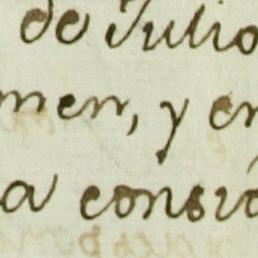 de Julio
men, y en
a consid